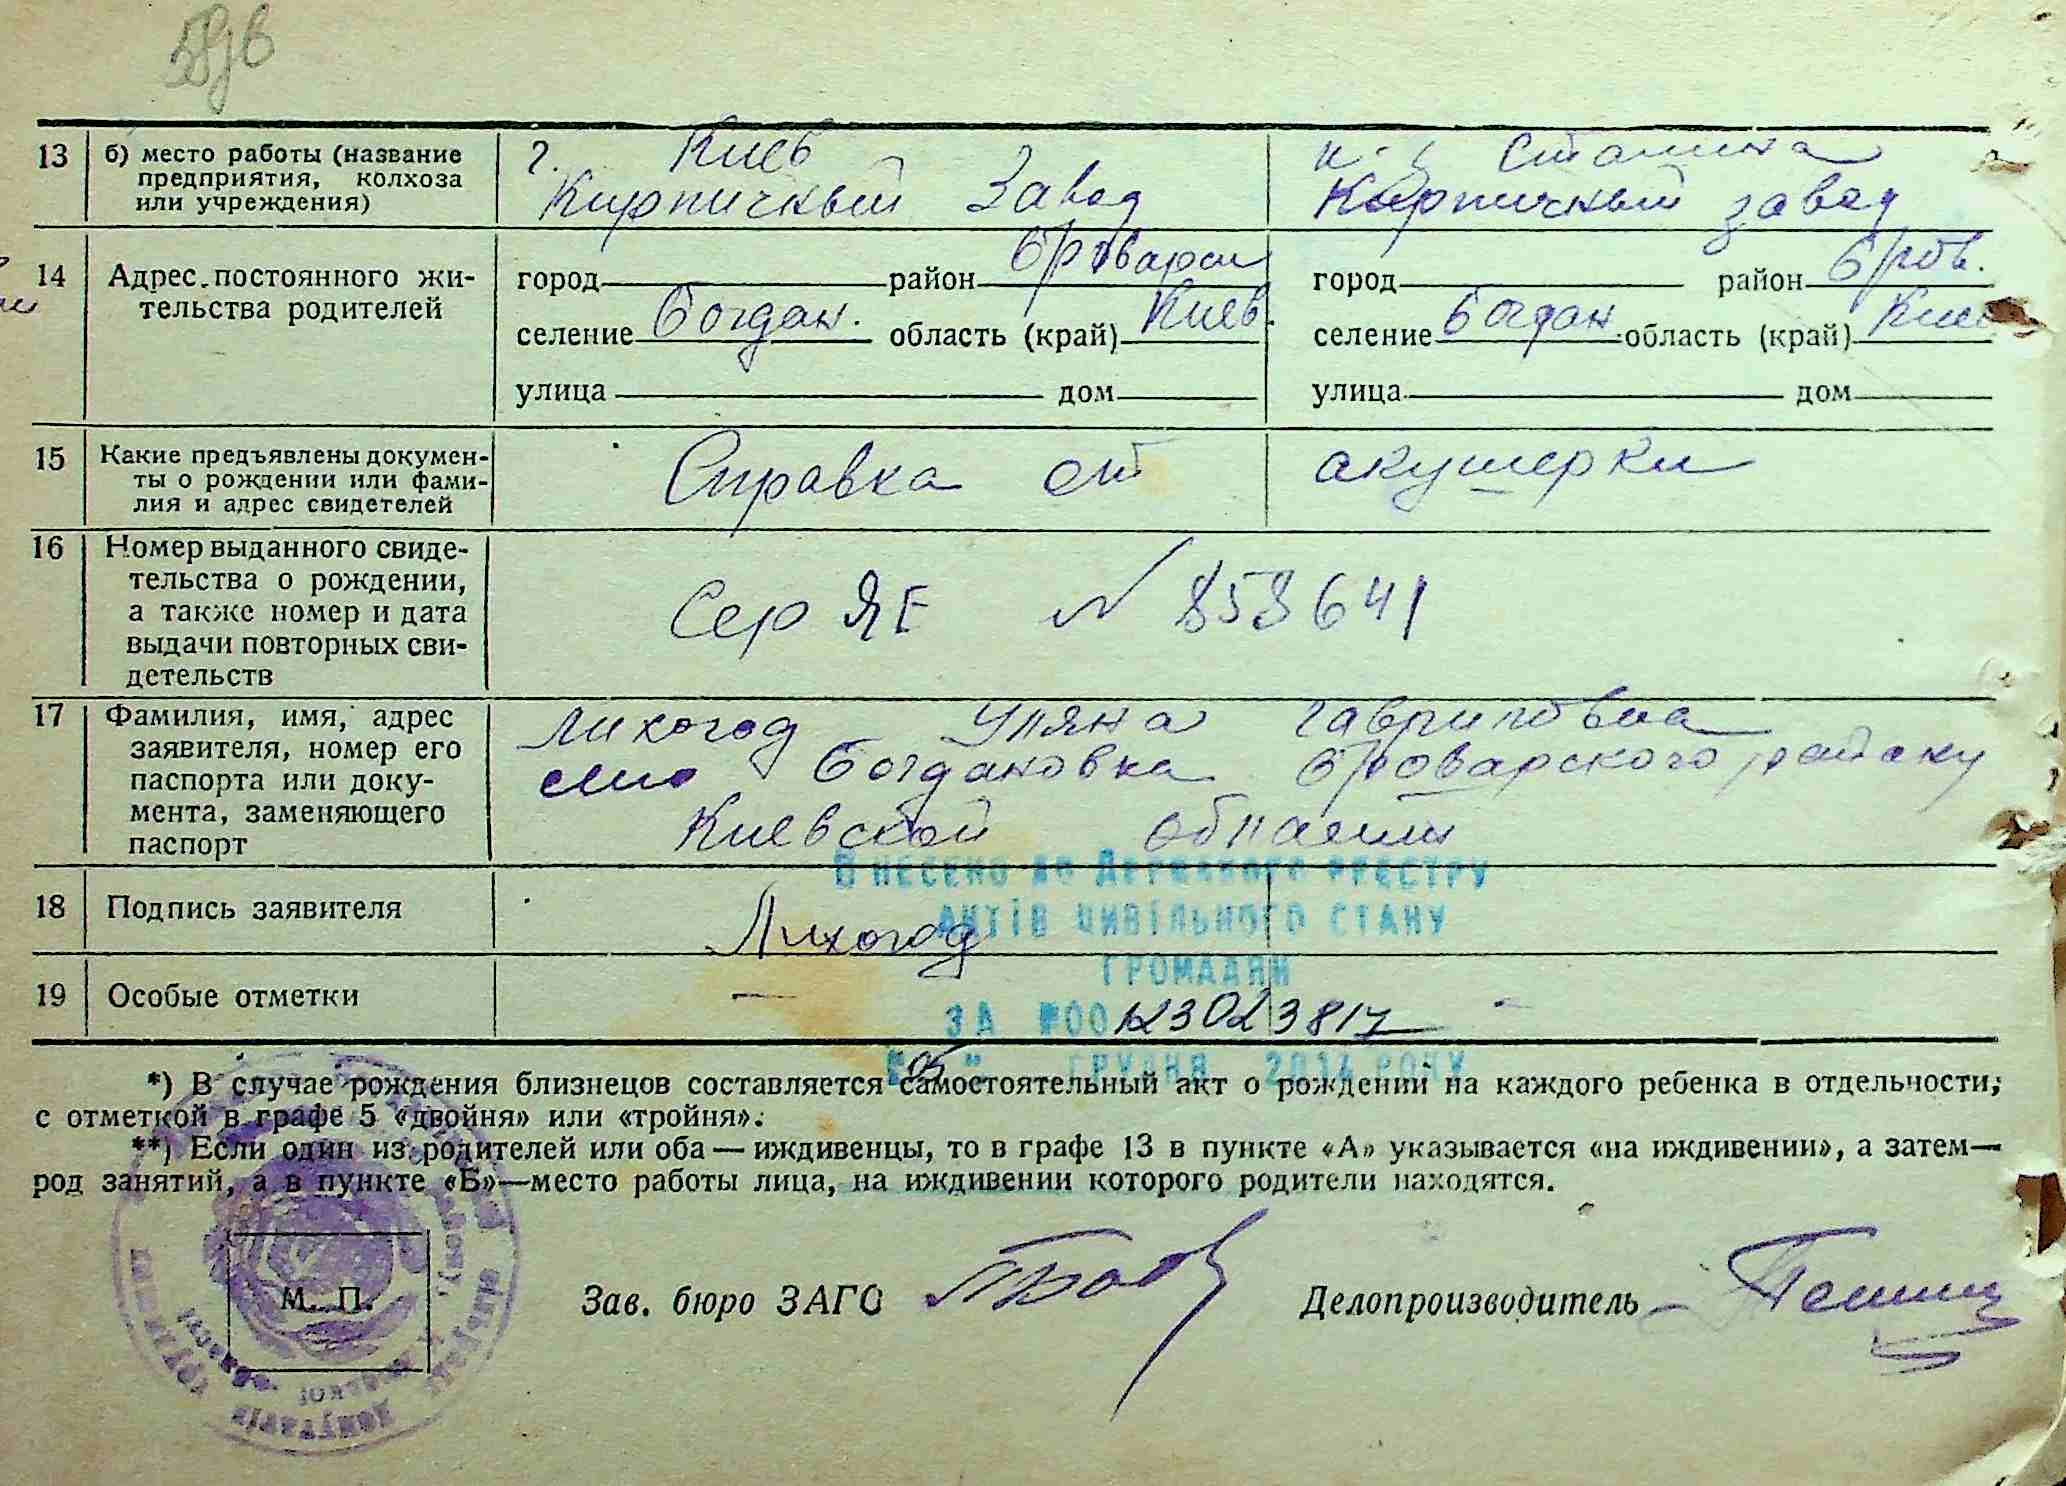 13 б) место работы (название предприятия, колхоза или учреждения)
г. Киев
Кирпичный Завод
Сталина
Кирпичный завод
14 Адрес постоянного жи-
тельства родителей
город район Броварск
селение Богдан. область (край) Киев.
улица дом
город район Бров.
селение Богдан. область (край) Киев
улица дом
15 Какие предъявлены докумен-
ты о рождении или фами-
лия и адрес свидетелей
Справка от акушерки
16 Номер выданного свиде-
тельства о рождении,
а также номер и дата
выдачи повторных сви-
детельств
Сер ЯЕ № 858641
17 Фамилия, имя, адрес
заявителя, номер его
паспорта или доку-
мента, заменяющего
паспорт
Лихогод Уляна Гавриловна
село Богдановка Броварского району
Киевской области
Внесено до Державного реєстру
актів цивільного стану
громадян
18 Подпись заявителя
Лихогод
19 Особые отметки —
за №00123023817
грудня 2014 року
*) В случае рождения близнецов составляется самостоятельный акт о рождении на каждого ребенка в отдельности,
с отметкой в графе 5 «двойня» или «тройня».
**) Если один из родителей или оба — иждивенцы, то в графе 13 в пункте «А» указывается «на иждивении», а затем—
род занятий, а в пункте «Б»—место работы лица, на иждивении которого родители находятся.
М. П.
Зав. бюро ЗАГС
Делопроизводитель